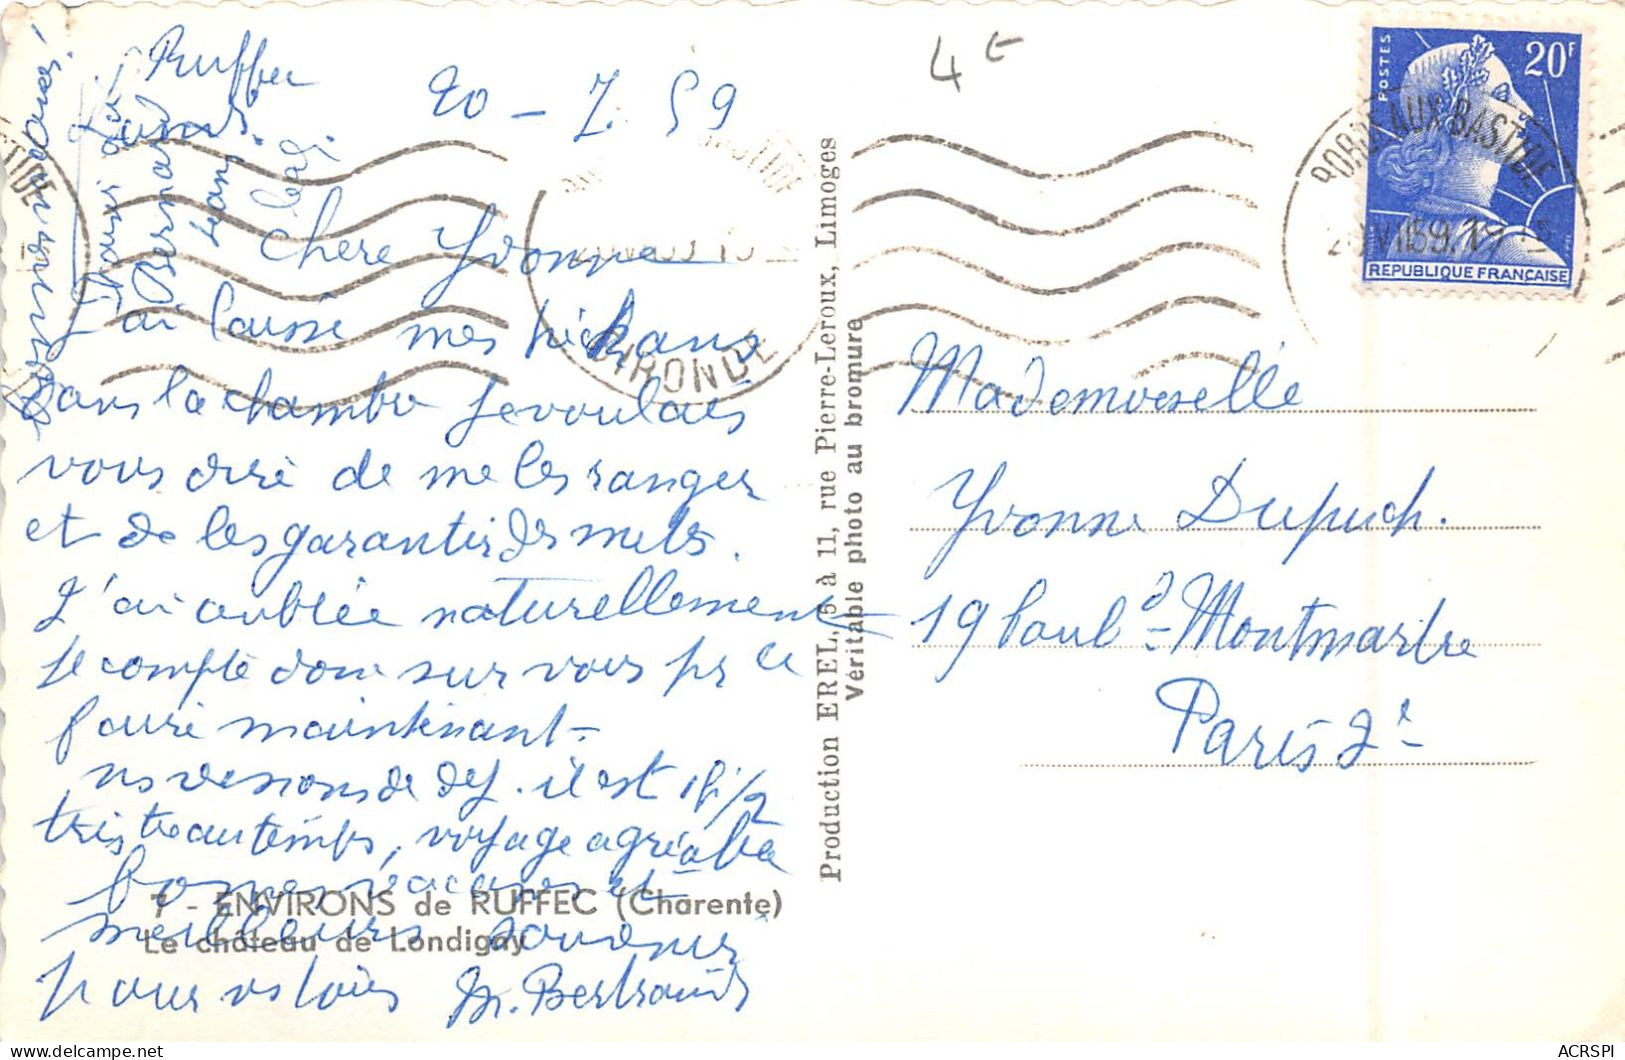 Ruffec
Lundi 20-7.59
4€
Chère Yvonne
J'ai laissé mes
dans la chambre je voulais
vous dire de me les ranger
et de les garantir des mites.
J'ai oubliée naturellement
je compte donc sur vous pr le
faire maintenant-
ns venons de dej. il est 1h 1/2
très beau temps, voyage agréable
bonnes vacances et
meilleurs souvenirs
pour vs tous M. Bertrand
7 - ENVIRONS de RUFFEC (Charente)
Le château de Londigny
Bernard
Jean
Production EREL, 5 à 11, rue Pierre-Leroux, Limoges
Véritable photo au bromure
POSTES
20F
REPUBLIQUE FRANÇAISE
BORDEAUX BASTIDE
GIRONDE
Mademoiselle
Yvonne Dupuch.
19 boul d - Montmartre
Paris 2e -
ACRSPI